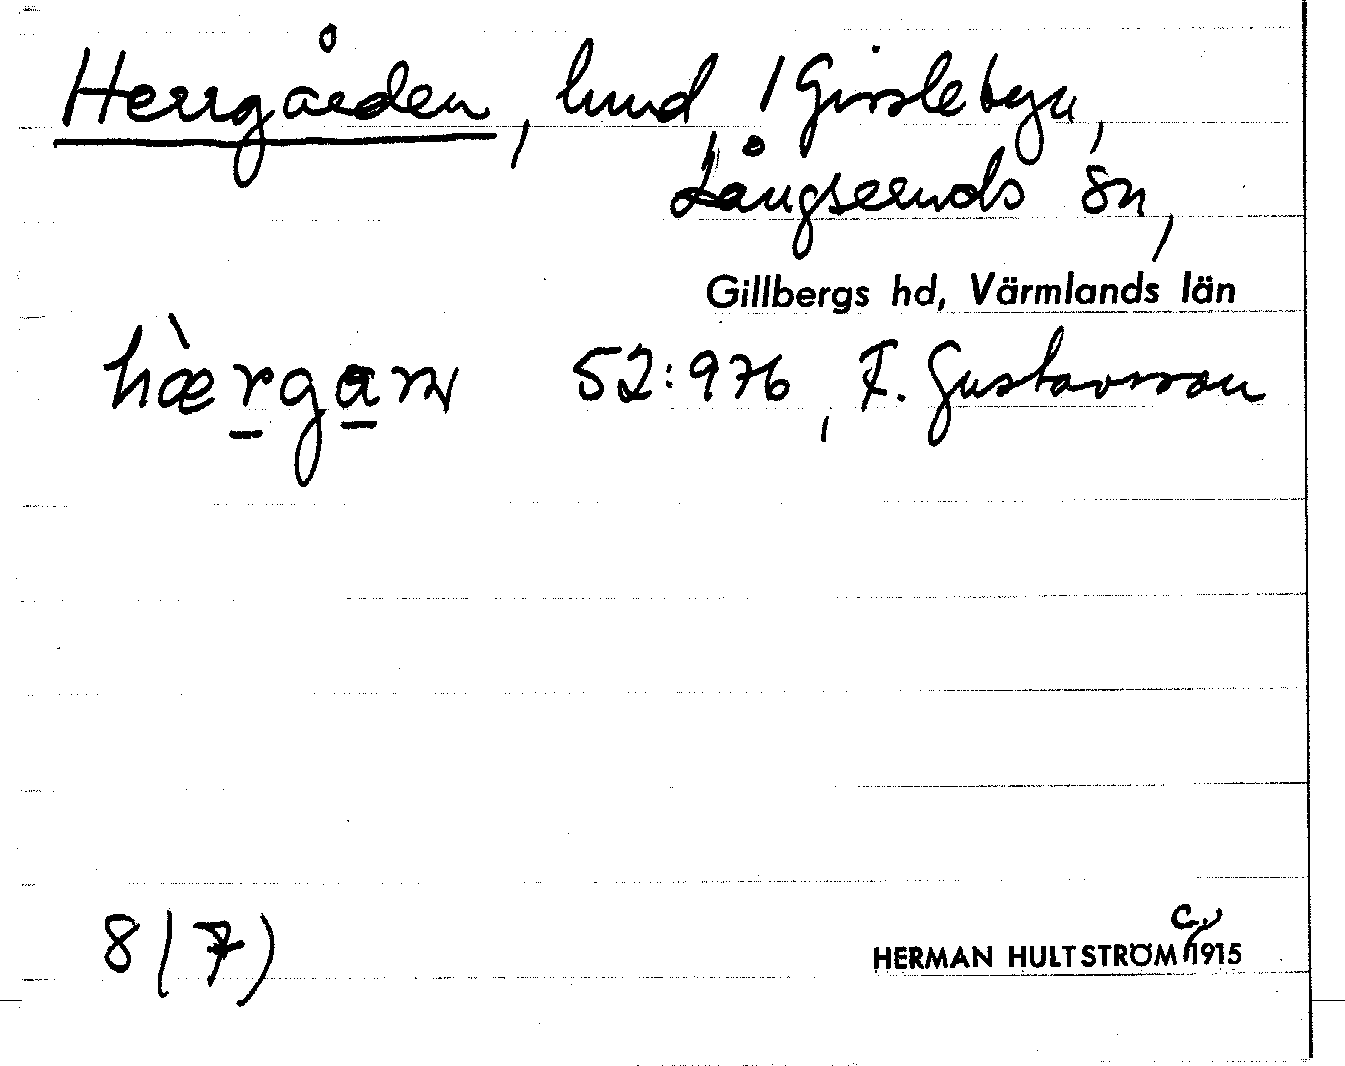 Herrgården, lund, / Girslebyn,
Långseruds sn,
Gillbergs hd, Värmlands län
hærgarn 52:976, F. Gustavsson
8 (7)
HERMAN HULTSTRÖM c. 1915